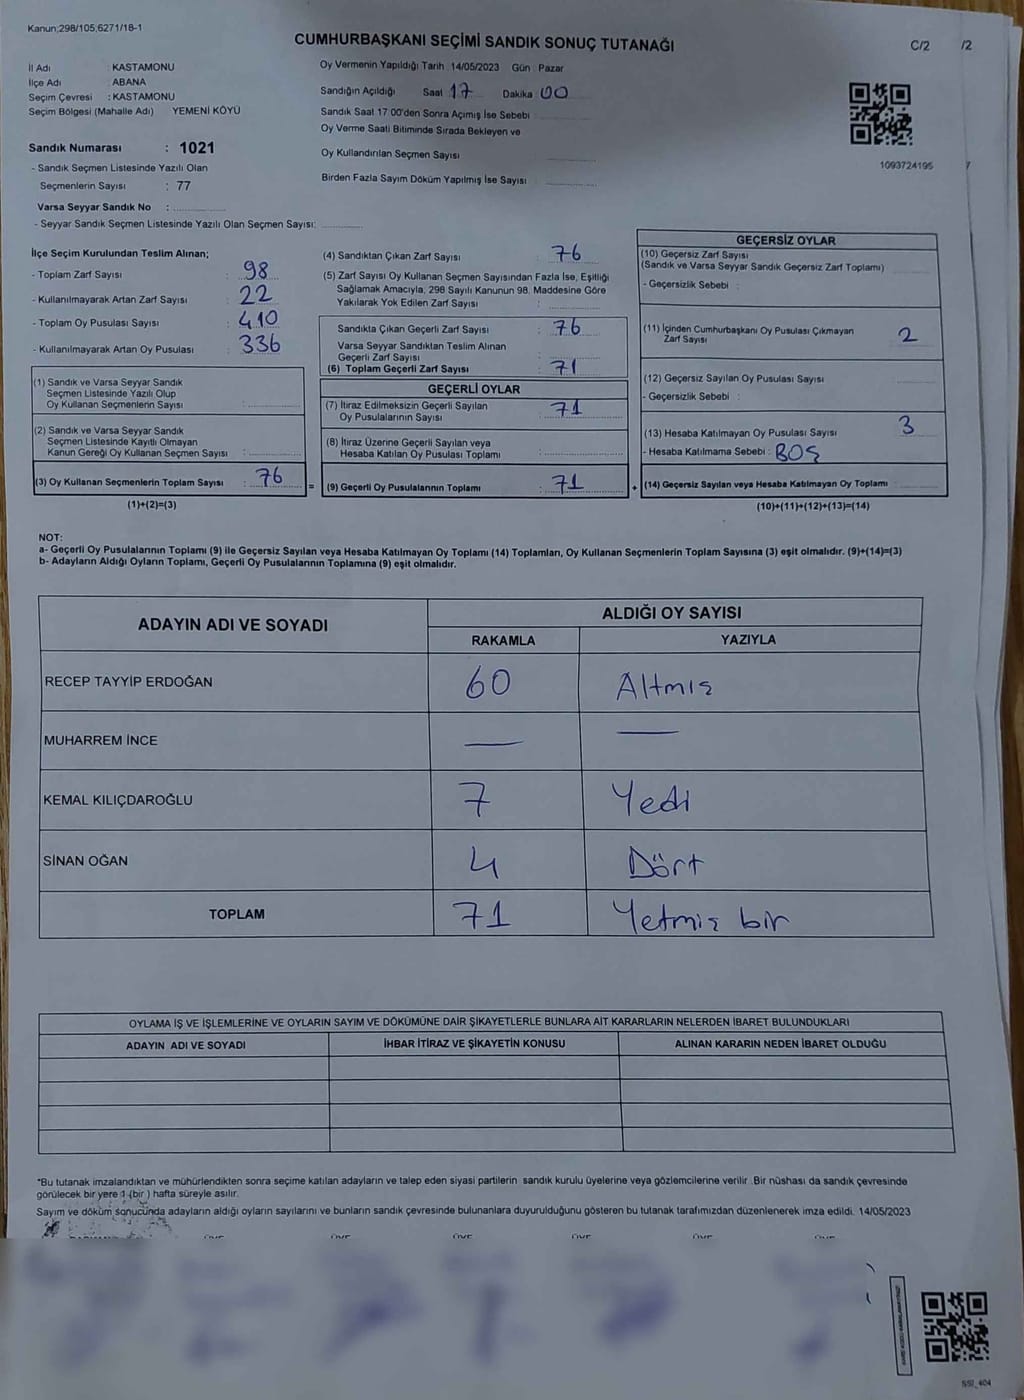 Kanun;298/105;6271/18-1
CUMHURBAŞKANI SEÇİMİ SANDIK SONUÇ TUTANAĞI
C/2
/2
İl Adı : KASTAMONU
İlçe Adı : ABANA
Seçim Çevresi : KASTAMONU
Seçim Bölgesi (Mahalle Adı) YEMENİ KÖYÜ
Sandık Numarası : 1021
- Sandık Seçmen Listesinde Yazılı Olan
Seçmenlerin Sayısı : 77
Varsa Seyyar Sandık No :
- Seyyar Sandık Seçmen Listesinde Yazılı Olan Seçmen Sayısı:
Oy Vermenin Yapıldığı Tarih 14/05/2023 Gün Pazar
Sandığın Açıldığı Saat 17 Dakika 00
Sandık Saat 17:00'den Sonra Açımış İse Sebebi
Oy Verme Saati Bitiminde Sırada Bekleyen ve
Oy Kullandırılan Seçmen Sayısı
Birden Fazla Sayım Döküm Yapılmış İse Sayısı
1093724195
İlçe Seçim Kurulundan Teslim Alınan;
- Toplam Zarf Sayısı : 98
- Kullanılmayarak Artan Zarf Sayısı : 22
- Toplam Oy Pusulası Sayısı : 410
- Kullanılmayarak Artan Oy Pusulası : 336
(1) Sandık ve Varsa Seyyar Sandık
Seçmen Listesinde Yazılı Olup
Oy Kullanan Seçmenlerin Sayısı :
(2) Sandık ve Varsa Seyyar Sandık
Seçmen Listesinde Kayıtlı Olmayan
Kanun Gereği Oy Kullanan Seçmen Sayısı :
(3) Oy Kullanan Seçmenlerin Toplam Sayısı : 76
(1)+(2)=(3)
=
(4) Sandıktan Çıkan Zarf Sayısı 76
(5) Zarf Sayısı Oy Kullanan Seçmen Sayısından Fazla İse, Eşitliği
Sağlamak Amacıyla, 298 Sayılı Kanunun 98. Maddesine Göre
Yakılarak Yok Edilen Zarf Sayısı :
Sandıkta Çıkan Geçerli Zarf Sayısı : 76
Varsa Seyyar Sandıktan Teslim Alınan
Geçerli Zarf Sayısı :
(6) Toplam Geçerli Zarf Sayısı : 71
GEÇERLİ OYLAR
(7) İtiraz Edilmeksizin Geçerli Sayılan
Oy Pusulalarının Sayısı : 71
(8) İtiraz Üzerine Geçerli Sayılan veya
Hesaba Katılan Oy Pusulası Toplamı :
(9) Geçerli Oy Pusulalarının Toplamı : 71
+
GEÇERSİZ OYLAR
(10) Geçersiz Zarf Sayısı
(Sandık ve Varsa Seyyar Sandık Geçersiz Zarf Toplamı)
- Geçersizlik Sebebi :
(11) İçinden Cumhurbaşkanı Oy Pusulası Çıkmayan
Zarf Sayısı 2
(12) Geçersiz Sayılan Oy Pusulası Sayısı
- Geçersizlik Sebebi :
(13) Hesaba Katılmayan Oy Pusulası Sayısı 3
- Hesaba Katılmama Sebebi : BOŞ
(14) Geçersiz Sayılan veya Hesaba Katılmayan Oy Toplamı
(10)+(11)+(12)+(13)=(14)
NOT:
a- Geçerli Oy Pusulalarının Toplamı (9) ile Geçersiz Sayılan veya Hesaba Katılmayan Oy Toplamı (14) Toplamları, Oy Kullanan Seçmenlerin Toplam Sayısına (3) eşit olmalıdır. (9)+(14)=(3)
b- Adayların Aldığı Oyların Toplamı, Geçerli Oy Pusulalarının Toplamına (9) eşit olmalıdır.
ADAYIN ADI VE SOYADI
ALDIĞI OY SAYISI
RAKAMLA YAZIYLA
RECEP TAYYİP ERDOĞAN 60 Altmış
MUHARREM İNCE — —
KEMAL KILIÇDAROĞLU 7 Yedi
SİNAN OĞAN 4 Dört
TOPLAM 71 Yetmiş bir
OYLAMA İŞ VE İŞLEMLERİNE VE OYLARIN SAYIM VE DÖKÜMÜNE DAİR ŞİKAYETLERLE BUNLARA AİT KARARLARIN NELERDEN İBARET BULUNDUKLARI
ADAYIN ADI VE SOYADI İHBAR İTİRAZ VE ŞİKAYETİN KONUSU ALINAN KARARIN NEDEN İBARET OLDUĞU
*Bu tutanak imzalandıktan ve mühürlendikten sonra seçime katılan adayların ve talep eden siyasi partilerin sandık kurulu üyelerine veya gözlemcilerine verilir .Bir nüshası da sandık çevresinde
görülecek bir yere 1 (bir ) hafta süreyle asılır.
Sayım ve döküm sonucunda adayların aldığı oyların sayılarını ve bunların sandık çevresinde bulunanlara duyurulduğunu gösteren bu tutanak tarafımızdan düzenlenerek imza edildi. 14/05/2023